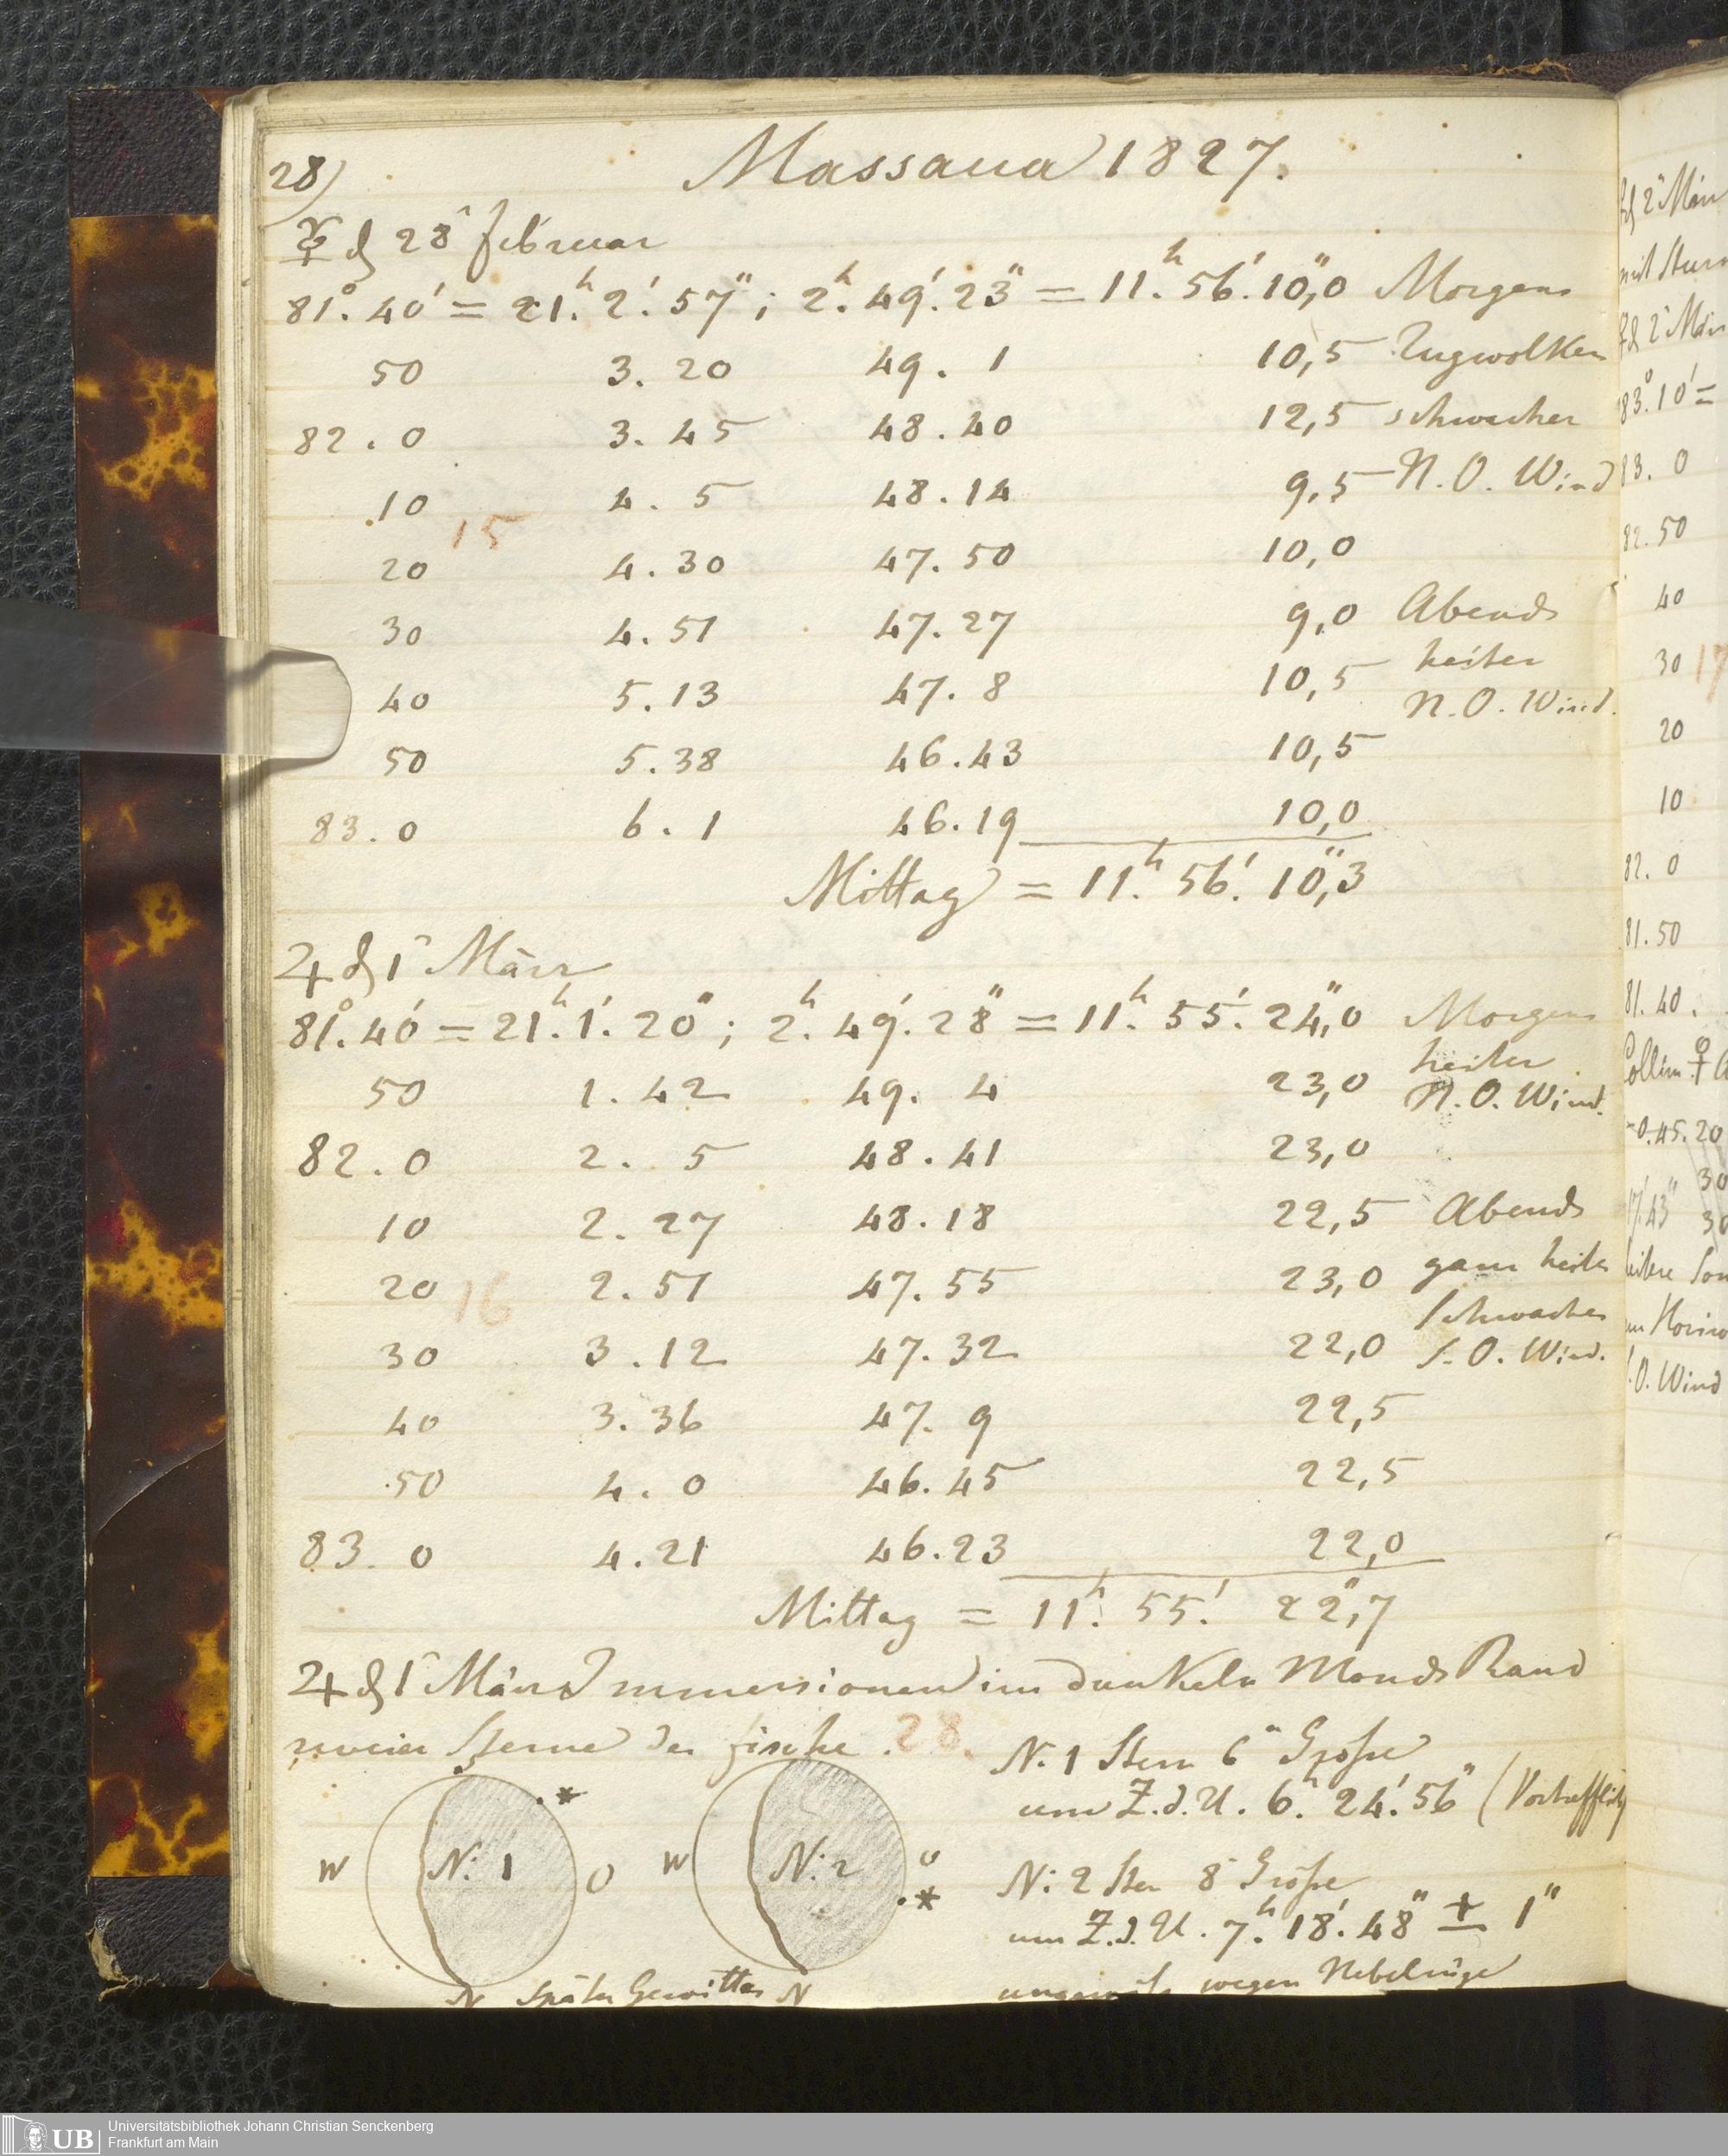 28)
Massaua 1827.
☿ d 28ⁿ Februar
81°. 40' = 21.ʰ 2.' 57"; 2.ʰ 49.' 23" = 11.ʰ 56.' 10,"0 Morgens
50 3. 20 49. 1 10,5 Zugwolken
82. 0 3. 45 48. 40 12,5 schwacher
10 4. 5 48. 14 9,5 N. O. Wind
15
20 4. 30 47. 50 10,0
30 4. 51 47. 27 9,0 Abends
heiter
40 5. 13 47. 8 10,5
N. O. Wind.
50 5. 38 46. 43 10,5
83. 0 6. 1 46. 19 10,0
Mittag = 11.ʰ 56.' 10,"3
♃ d 1ⁿ März
81°. 40' = 21.ʰ 1.' 20"; 2.ʰ 49.' 28" = 11.ʰ 55.' 24,"0 Morgens
heiter
50 1. 42 49. 4 23,0 N. O. Wind.
82. 0 2. 5 48. 41 23,0
10 2. 27 48. 18 22,5 Abends
20 2. 51 47. 55 23,0 ganz heiter
16
schwacher
30 3. 12 47. 32 22,0 S. O. Wind.
40 3. 36 47. 9 22,5
50 4. 0 46. 45 22,5
83. 0 4. 21 46. 23 22,0
Mittag = 11.ʰ 55.' 22,"7
♃ d 1ⁿ März Immersionen im dunkeln Monds Rand
zweier Sterne der Fische. 28.
N. 1 Stern 6ⁿ Größe
um Z. d. U. 6.ʰ 24.' 56" (Vortrefflich
S
W N: 1 O W N: 2 O
N: 2 Ster 8ⁿ Größe
um Z. d. U. 7.ʰ 18.' 48" ± 1"
N später Gewitter N
ungewiß wegen Nebelzüge
d 2ⁿ März
mit Stur
d 2ⁿ März
83°. 10' =
83. 0
82. 50
40
30 17
20
10
82. 0
81. 50
81. 40.
Collim ♀
-0. 45. 20
30
17' 43" 30
O. Wind
UB
Universitätsbibliothek Johann Christian Senckenberg
Frankfurt am Main